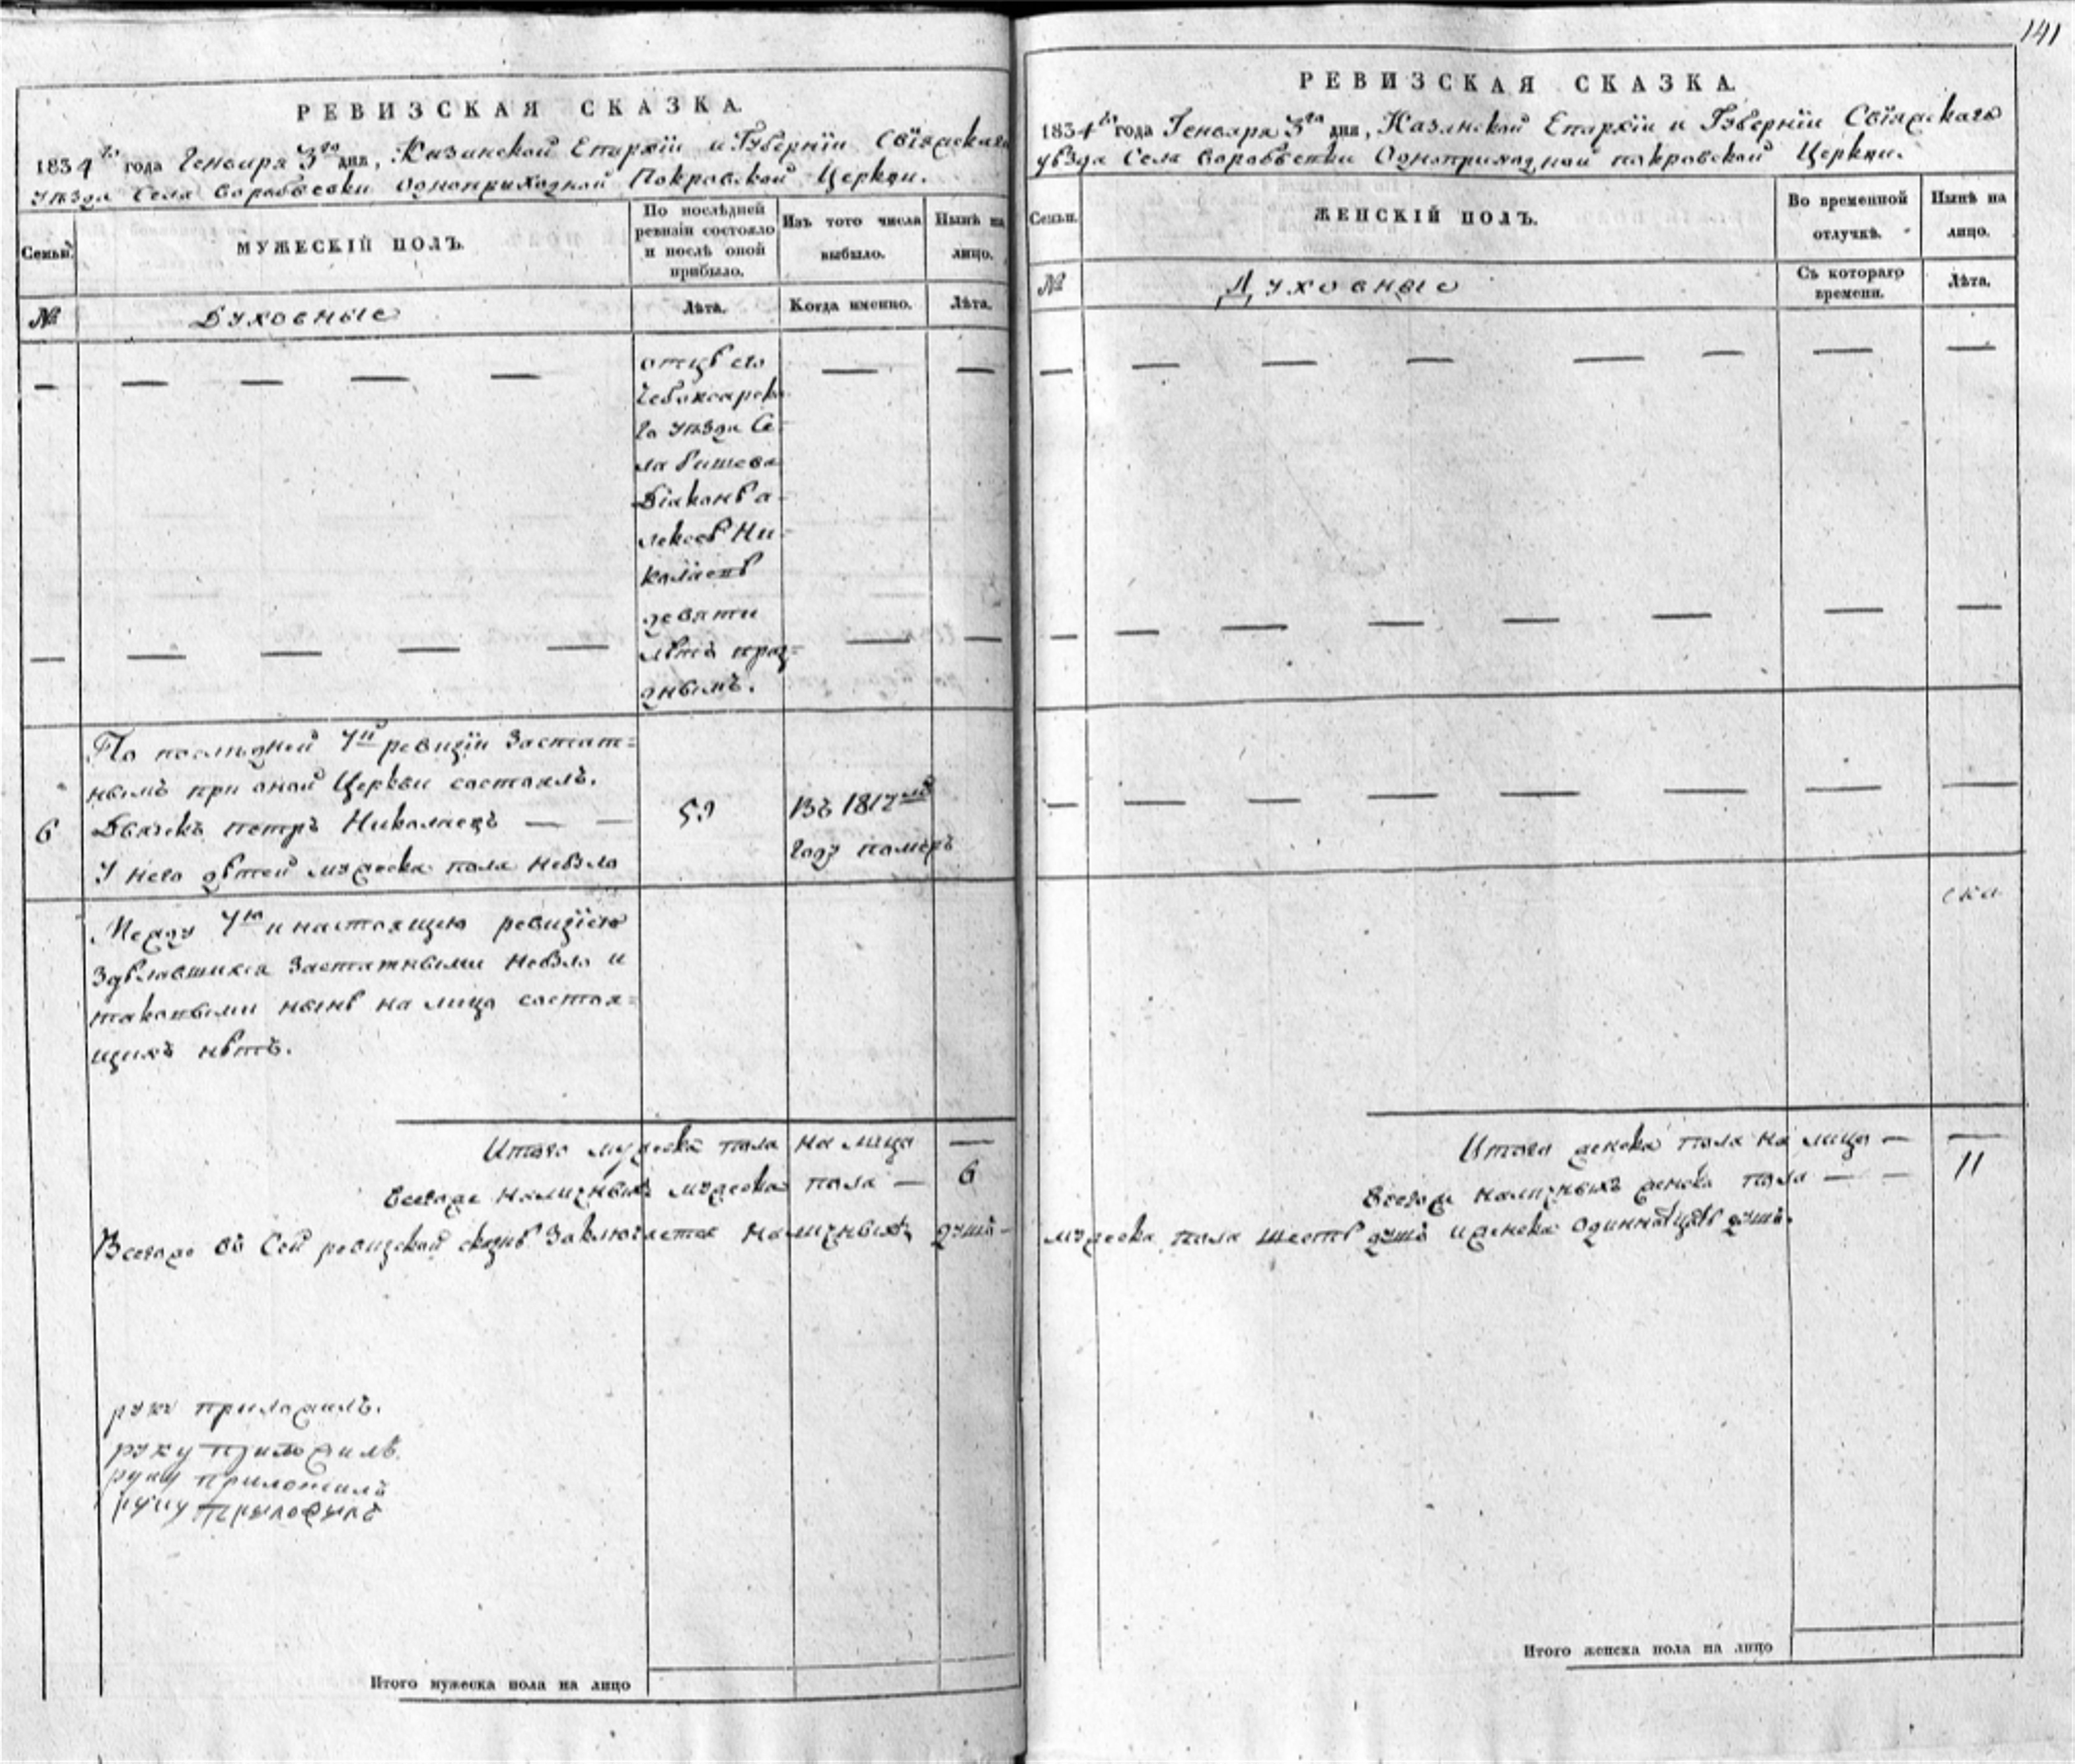 РЕВИЗСКАЯ СКАЗКА.
1834го года Генваря 3го дня, Казанской Епархїи и Губернїи Свїяжскаго
уѣзда Села Воробьевки Одноприходной Покровской Церкви.
Семьи.
МУЖЕСКІЙ ПОЛЪ.
По послѣдней ревизіи состояло и послѣ оной прибыло.
Изъ того числа выбыло.
Нынѣ на лицо.
№
Духовные
Лѣта.
Когда именно.
Лѣта.
отцѣ его
Чебоксарска
го уѣзда Се
ла Бишева
Дїаконѣ а
лексеѣ Ни
колаевѣ
девяти
лѣтъ праз=
днымъ.
По послѣдней 7й ревизїи Заштат=
нымъ при оной Церкви состоялъ.
6
Дьячекъ Петръ Николаевъ
59
Въ 1817мъ
году померъ
У него дѣтей мужеска пола небыло
Между 7ю и настоящею ревизїею
Здѣлавшихся Заштатными небыло и
таковыми нынѣ на лицо состоя=
щихъ нѣтъ.
Итого мужеска пола на лицо —
Всегоже наличныхъ мужеска пола — 6
Всегоже въ Сей ревизской сказкѣ Заключается наличныхъ душъ
руку приложилъ.
руку приложилъ.
руку приложилъ
руку приложилъ
Итого мужеска пола на лицо
141
РЕВИЗСКАЯ СКАЗКА.
1834го года Генваря 3го дня, Казанской Епархїи и Губернїи Свїяжскаго
уѣзда Села Воробьевки Одноприходной Покровской Церкви.
Семьи.
ЖЕНСКІЙ ПОЛЪ.
Во временной отлучкѣ.
Нынѣ на лицо.
№
Духовные
Съ котораго времени.
Лѣта.
ска
Итого женска пола на лицо —
Всегоже наличныхъ женска пола — — 11
мужеска пола шесть душъ и женска одиннатцать душъ.
Итого женска пола на лицо